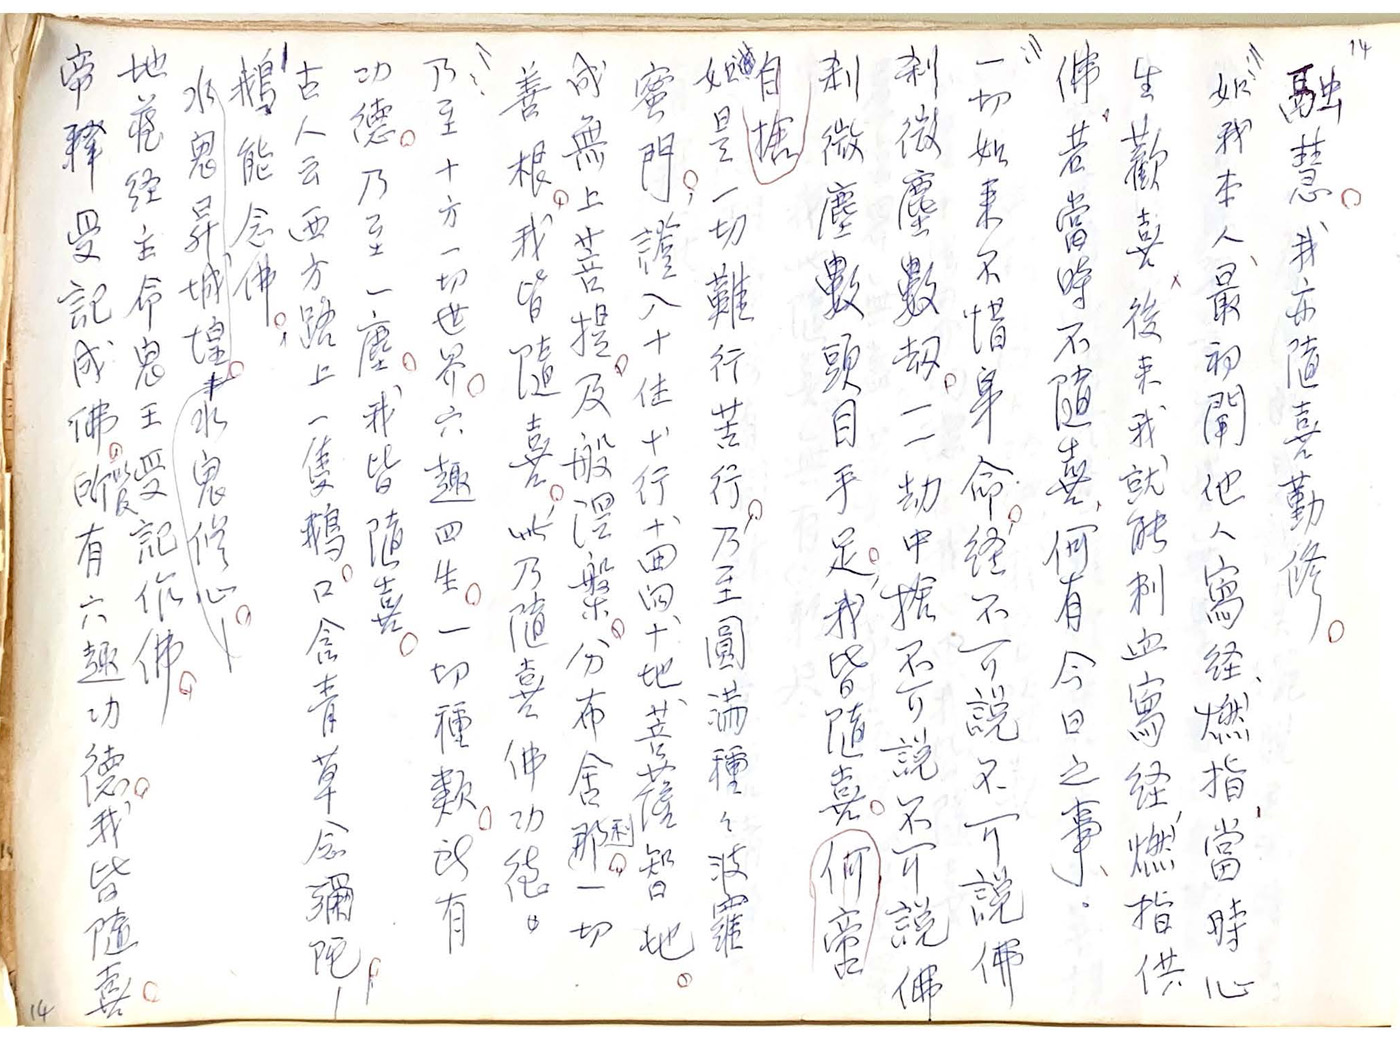 14
融慧。我亦隨喜勤修。
如我本人、最初聞他人寫経、燃指、當時心
生歡喜、後来我就能刺血寫経、燃指供
佛、若當時不隨喜、何有今日之事、。
一切如来不惜身命、経不可說不可說佛
刹微塵數劫。一一劫中捨不可說不可說佛
刹微塵數頭目手足。我皆隨喜。何啻
自捨
如是一切難行苦行、乃至圓滿種々波羅
蜜門、證入十住十行十回向十地、菩薩智地。
成無上菩提、及般涅槃。分布舍利。那一切
善根。我皆隨喜。此乃隨喜佛功德。
乃至十方一切世界。六趣四生。一切種類。所有
功德。乃至一塵。我皆隨喜。
古人云西方路上一隻鵝。口含青草念彌陀！
鵝能念佛。
水鬼昇城隍。水鬼修心。！
地蔵経主命鬼王受記作佛。
帝釋受記成佛。所有六趣功德。我皆隨喜。
14